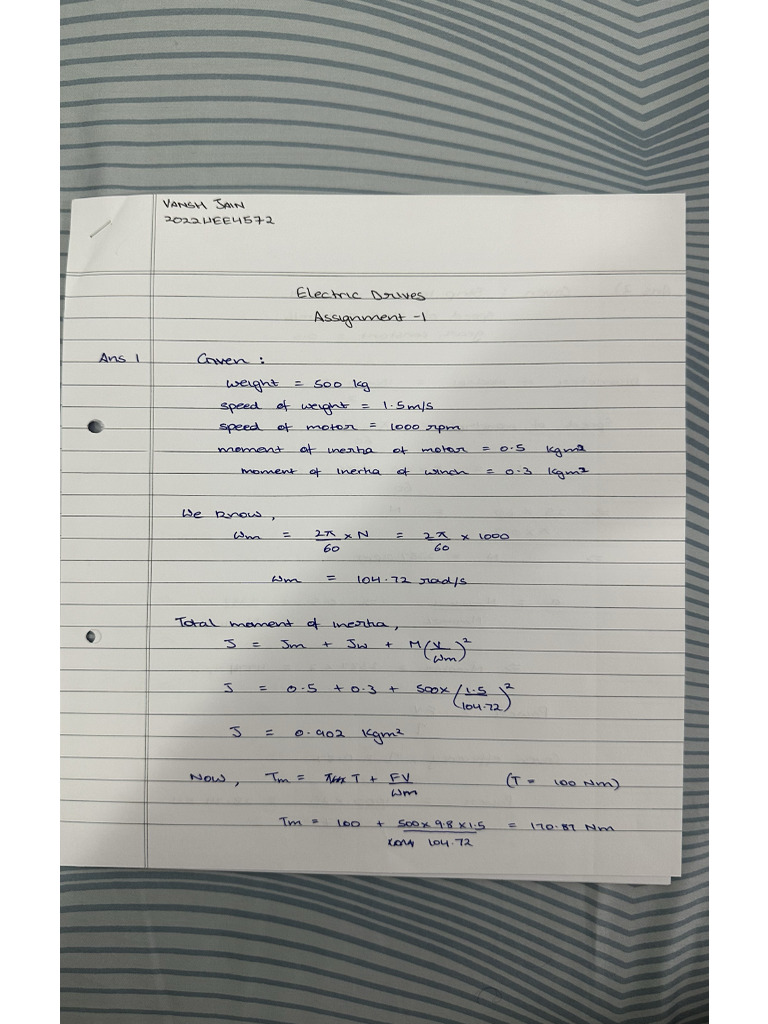 VANSH JAIN
2022UEE4572
Electric Drives
Assignment -1
Ans 1 Given :
weight = 500 kg
speed of weight = 1.5m/s
speed of motor = 1000 rpm
moment of inertia of motor = 0.5 kgm²
moment of inertia of winch = 0.3 kgm²
We know,
ωm = 2π/60 × N = 2π/60 × 1000
ωm = 104.72 rad/s
Total moment of inertia,
J = Jm + Jw + M(V/ωm)²
J = 0.5 + 0.3 + 500×(1.5/104.72)²
J = 0.902 Kgm²
Now, Tm = T + FV/ωm (T = 100 Nm)
Tm = 100 + 500×9.8×1.5/104.72 = 170.87 Nm